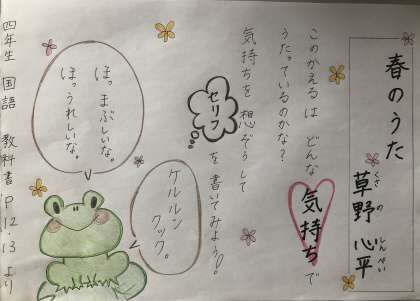 春のうた
草野 心平
くさ の しんぺい
このかえるは どんな 気持ちで
うたっているのかな?
気持ちを 想ぞうして
セリフ を書いてみよう。
ケルルン
クック。
ほっ まぶしいな。
ほっ うれしいな。
四年生 国語 教科書 P.12.13 より